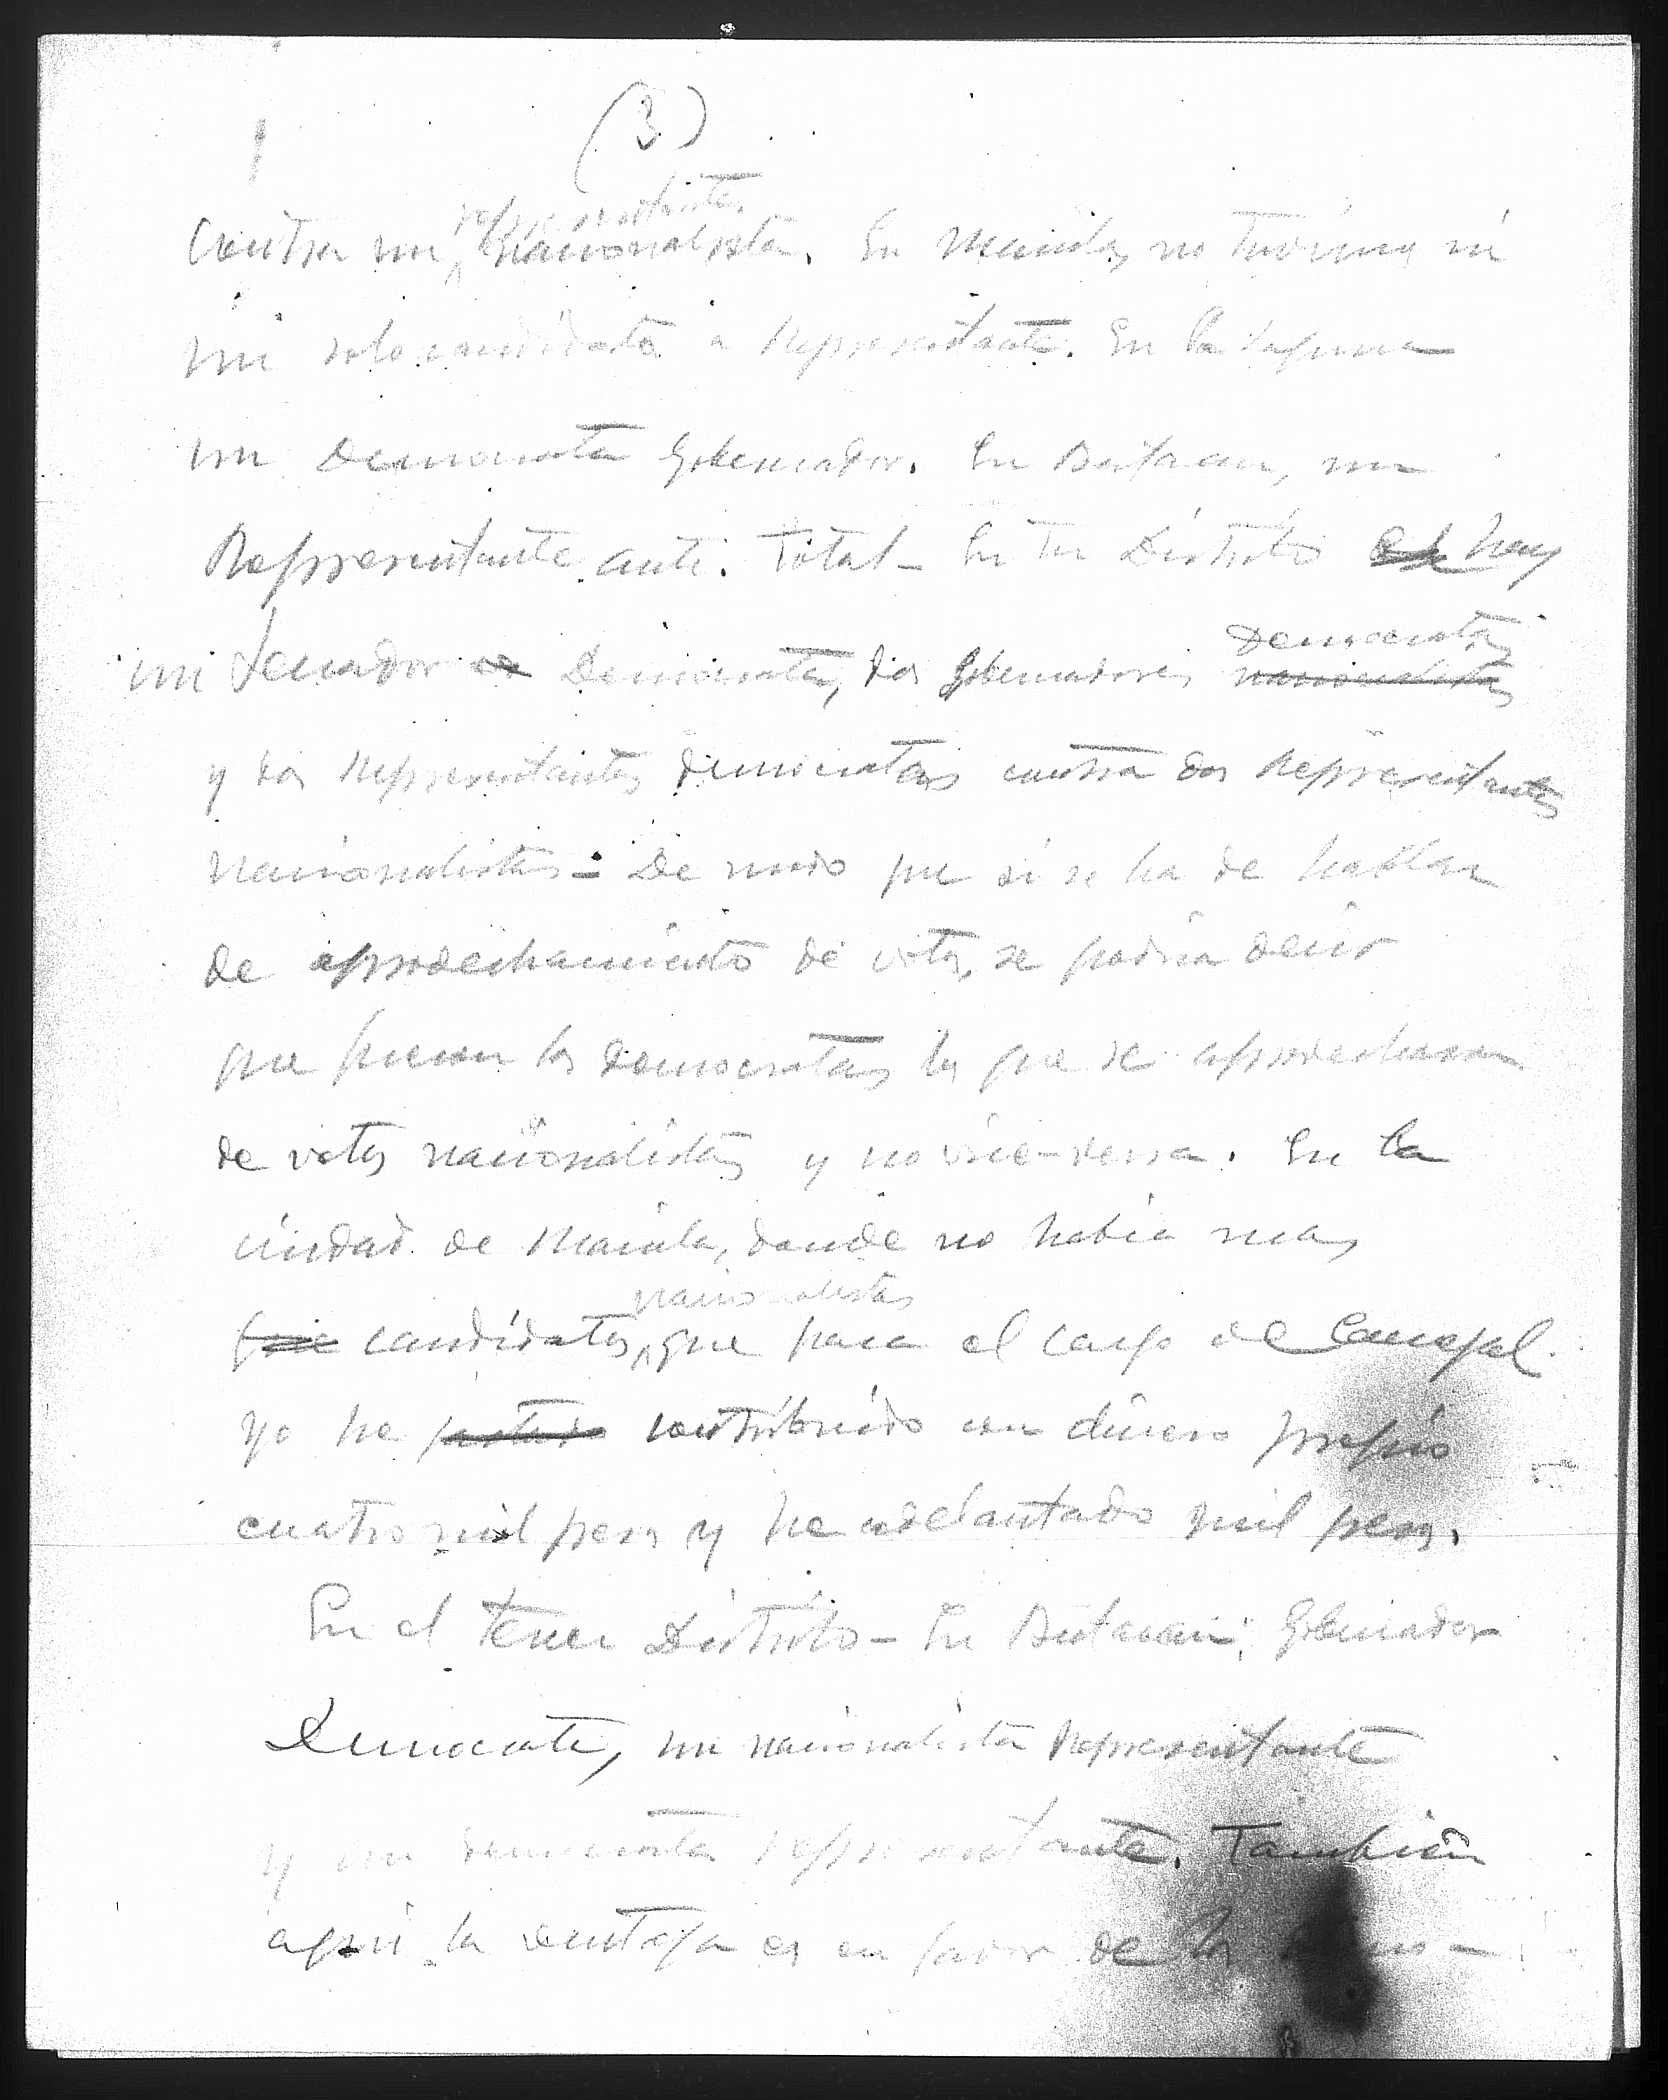 (3)
representante
contra un nacionalista. En Manila, no tuvimos ni
un solo candidato a Representante. En la Laguna
un Democrata Gobernador. En Bataan, un
Representante anti. Total- En tu Distrito hay
un Senador Democrata, dos Gobernadores Democratas nacionalistas
y dos Representantes democratas contra dos Representantes
nacionalistas- De modo que si se ha de hablar
de aprovechamiento de votos, se podria decir
que fueron los democratas los que se aprovecharon
de votos nacionalistas y no vice-versa. En la
ciudad de Manila, donde no habia mas
nacionalistas
que candidatos, que para el cargo de Concejal
yo he gastado contribuido con dinero propio
cuatro mil pesos y he adelantado mil pesos.
En el tercer Distrito- En Bulacan; Gobernador
Democrata, un nacionalista Representante
y un democrata representante. También
aqui la ventaja es en favor de los